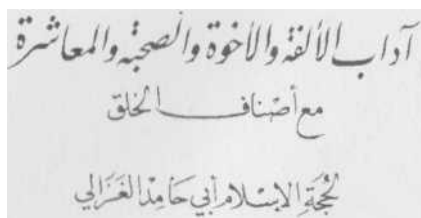 آداب الألفة والأخوة والصحبة والمعاشرة
مع أصناف الخلق
لحجة الإسلام أبي حامد الغزالي